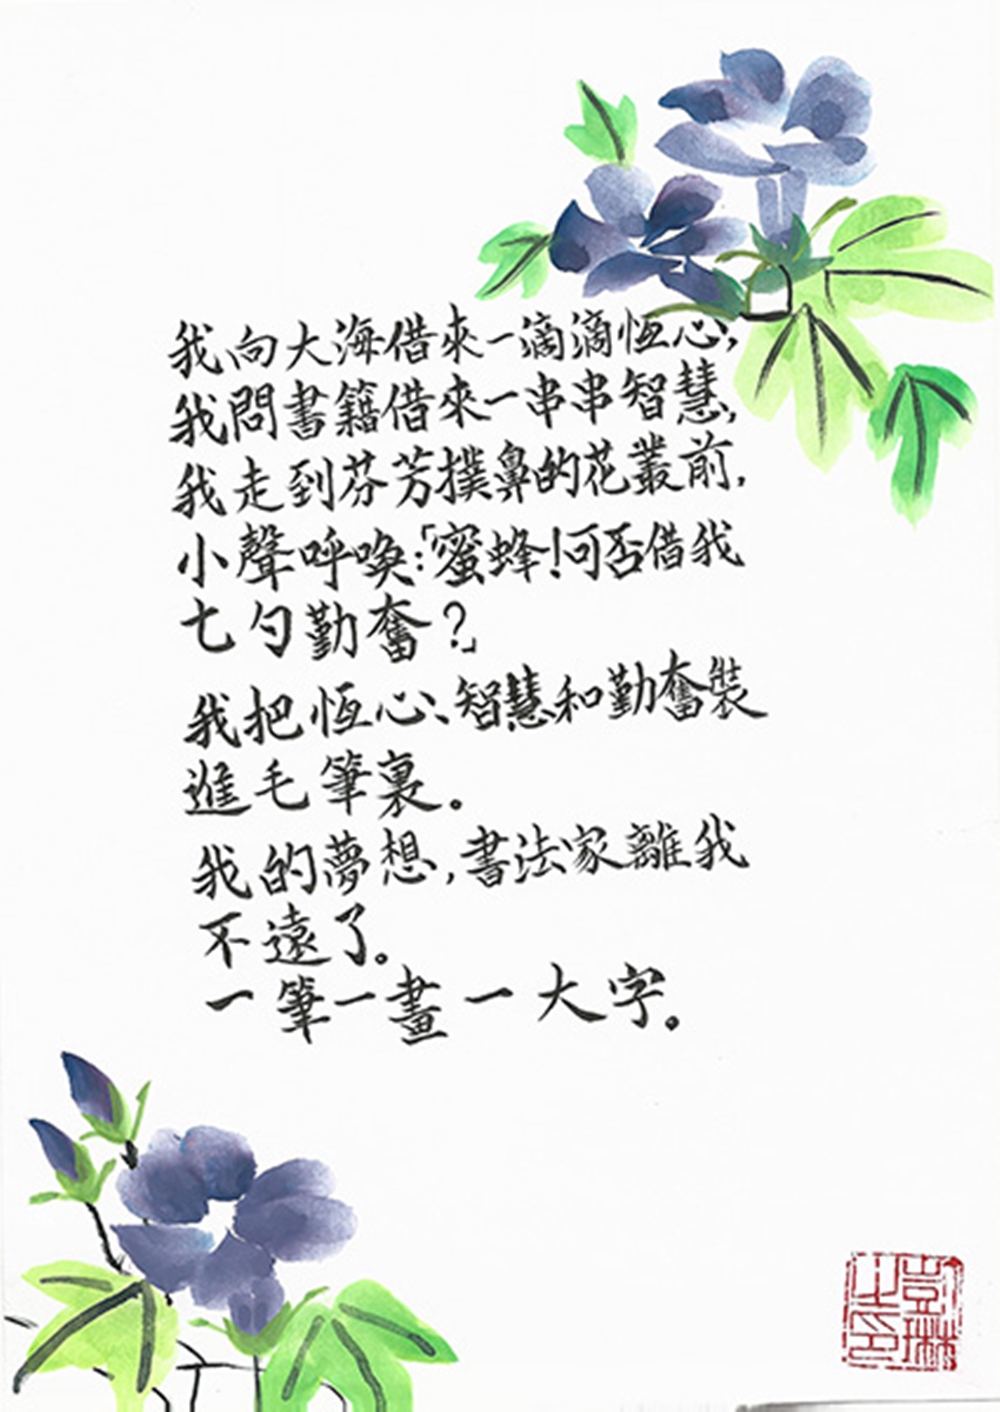 我向大海借來一滴滴恆心，
我問書籍借來一串串智慧，
我走到芬芳撲鼻的花叢前，
小聲呼喚：「蜜蜂！可否借我
七勺勤奮？」
我把恆心、智慧和勤奮裝
進毛筆裏。
我的夢想，書法家離我
不遠了。
一筆一畫一大字。